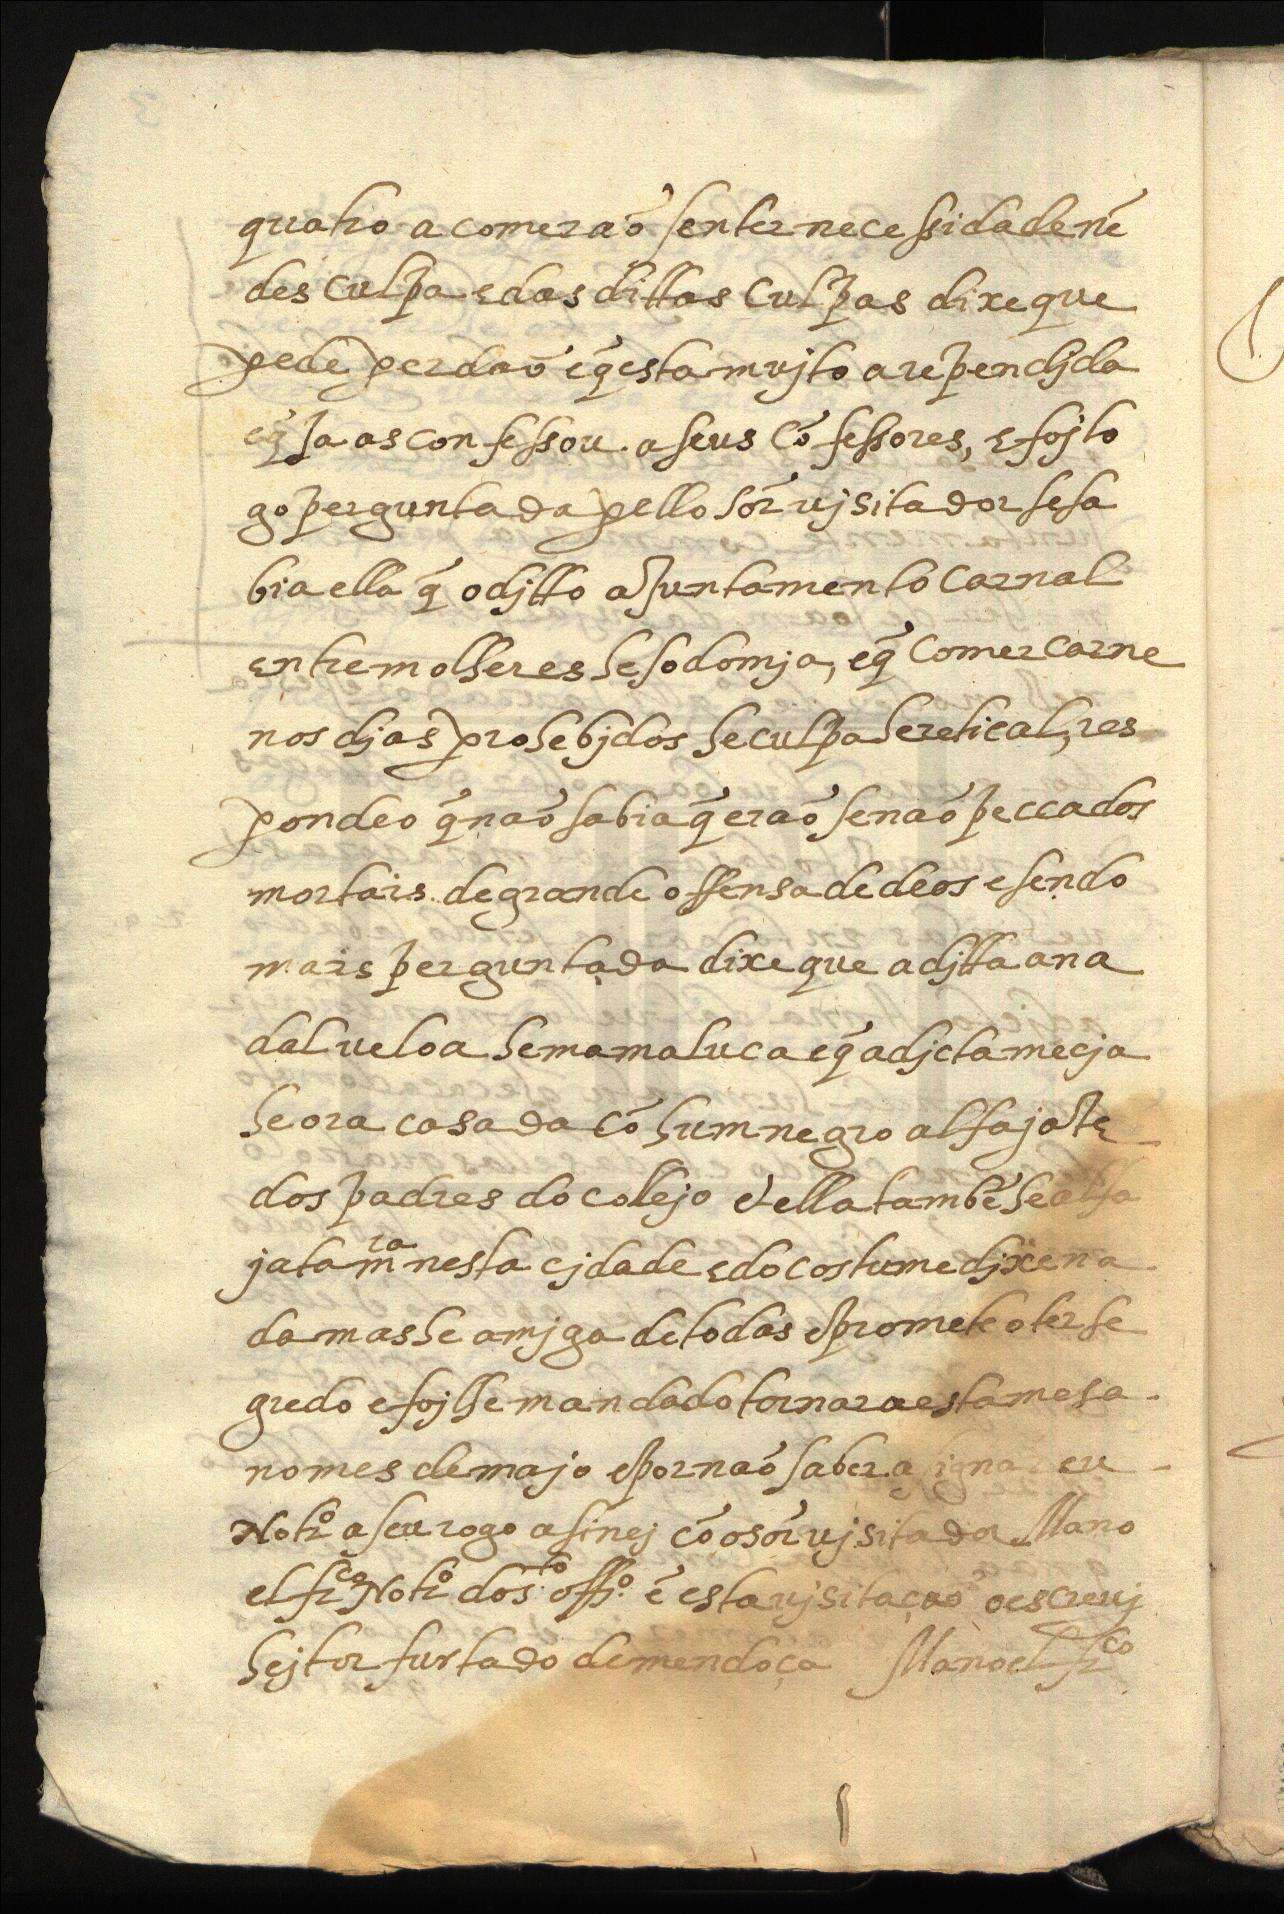 quatro a comeraõ sen ter necessidade nẽ
desculpa e das dittas culpas dixe que
pede perdaõ e q̃ esta mujto arependjda
e q̃ ja as confessou a seus cõfessores, e foj lo
go perguntada pello sõr vjsitador se sa
bia ella q̃ o djtto ajuntamento carnal
entre molheres he sodomja, e q̃ comer carne
nos djas prohebjdos he culpa heretical, res
pondeo q̃ naõ sabia q̃ eraõ senaõ peccados
mortais de grande offensa de deos e sendo
mais perguntada dixe que a djtta ana
dalveloa he mamaluca e q̃ a djcta mecja
he ora casada cõ hum negro alfajate
dos padres do collejo e ella tambẽ he alfa
jata m<sup>ra</sup> nesta cjdade e do costume djxe na
da mas he amjga de todas e prometeo ter se
gredo e foj lhe mandado tornar a esta mesa
no mes de majo e por naõ saber asignar eu
Not<sup>ro</sup> a seu rogo asinej cõ o sõr vjsitador Mano
el fr<sup>co</sup> Not<sup>ro</sup> do s<sup>to</sup> off<sup>o</sup> ẽ esta vjsitaçaõ o escrevj
hejtor furtado de mendoça Manoel fr<sup>co</sup>